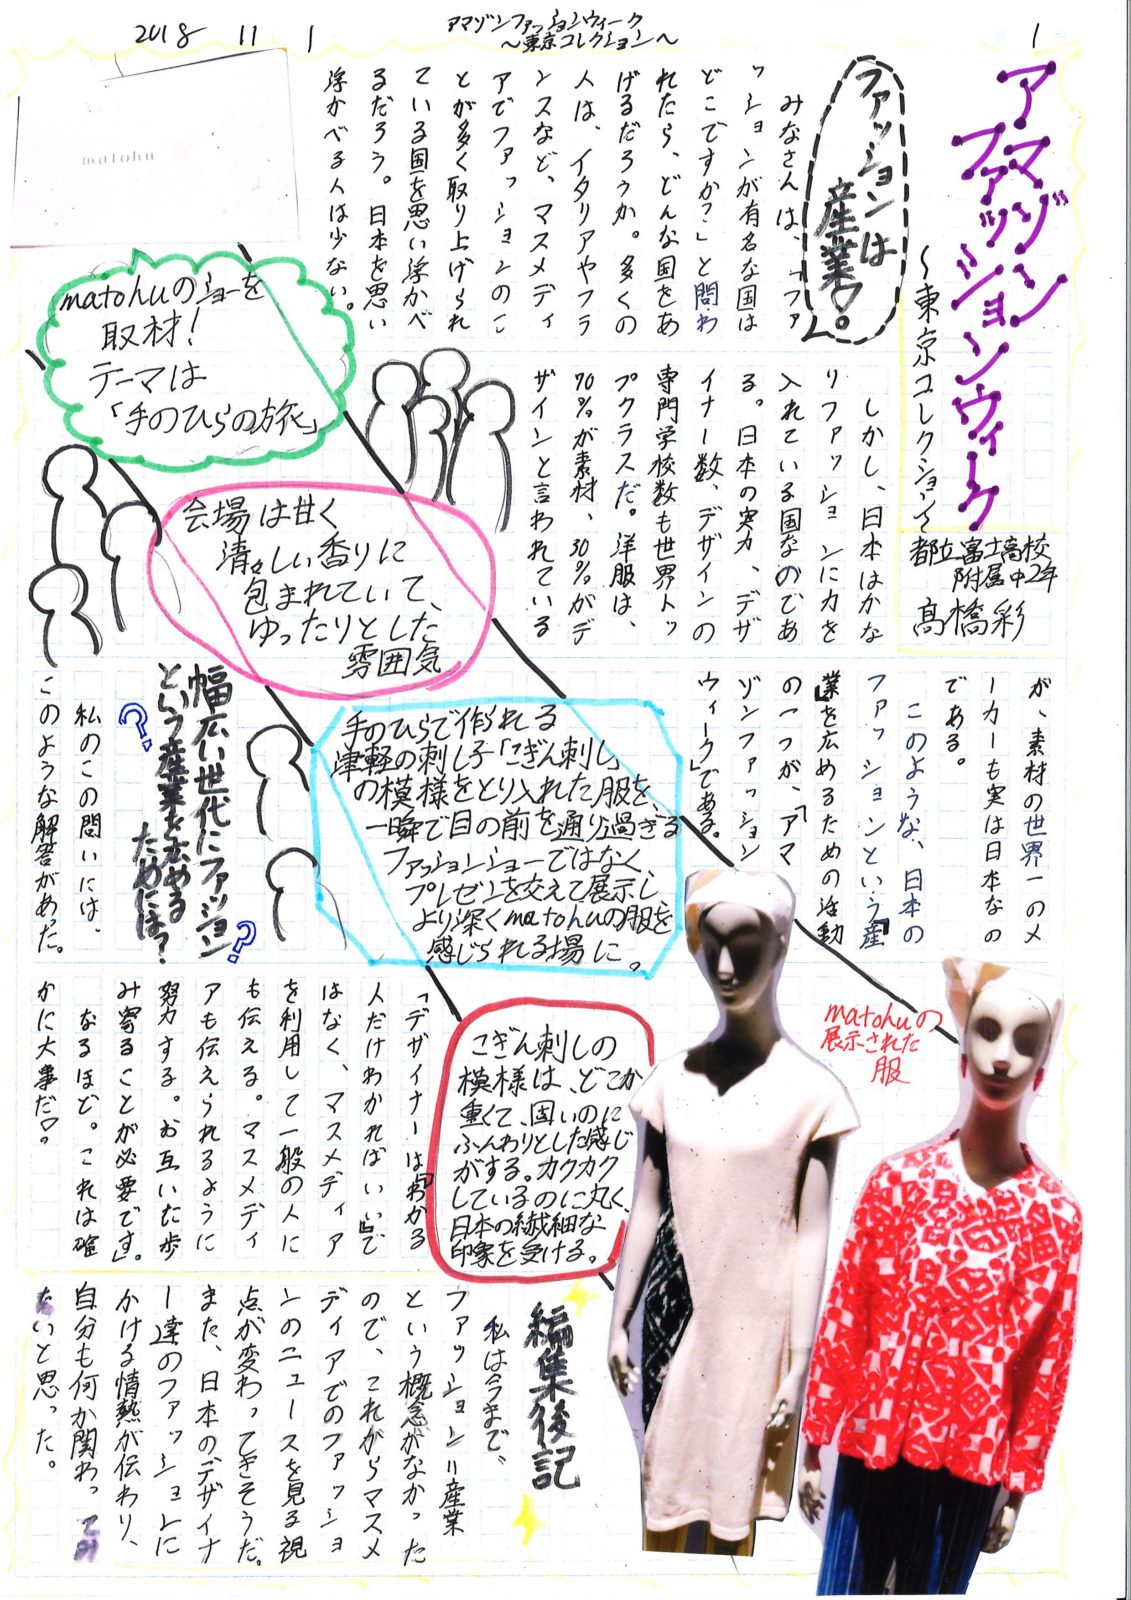 2018 11 1
アマゾンファッションウィーク
～東京コレクション～
1
アマゾン
ファッションウィーク
～東京コレクション～
都立富士高校
附属中2年
髙橋彩
ファッションは
産業♡。
みなさんは、「ファ
ッションが有名な国は
どこですか？」と問わ
れたら、どんな国をあ
げるだろうか。多くの
人は、イタリアやフラ
ンスなど、マスメディ
アでファッションのこ
とが多く取り上げられ
ている国を思い浮かべ
るだろう。日本を思い
浮かべる人は少ない。
しかし、日本はかな
りファッションに力を
入れている国なのであ
る。日本の実力、デザ
イナー数、デザインの
専門学校数も世界トッ
プクラスだ。洋服は、
70%が素材、30%がデ
ザインと言われている
が、素材の世界一のメ
ーカーも実は日本なの
である。
このような、日本の
ファッションという「産
業」を広めるための活動
の一つが、「アマ
ゾンファッション
ウィーク」である。
matohu
matohuのショーを
取材！
テーマは
「手のひらの旅」
会場は甘く
清々しい香りに
包まれていて、
ゆったりとした
雰囲気
手のひらで作られる
津軽の刺し子「こぎん刺し」
の模様をとり入れた服を、
一瞬で目の前を通り過ぎる
ファッションショーではなく、
プレゼンを交えて展示し、
より深くmatohuの服を
感じられる場に。
こぎん刺しの
模様は、どこか
重くて、固いのに
ふんわりとした感じ
がする。カクカク
しているのに丸く、
日本の繊細な
印象を受ける。
matohuの
展示された
服
幅広い世代にファッション
という産業を広める
ためには？
？
？
私のこの問いには、
このような解答があった。
「デザイナーは「わかる
人だけわかればいい」で
はなく、マスメディア
を利用して一般の人に
も伝える。マスメディ
アも伝えられるように
努力する。お互いた歩
み寄ることが必要です」。
なるほど。これは確
かに大事だ♡。
編集後記
私は今まで、
ファッション=産業
という概念がなかった
ので、これからマスメ
ディアでのファッショ
ンのニュースを見る視
点が変わってきそうだ。
また、日本のデザイナ
ー達のファッションに
かける情熱が伝わり、
自分も何か関わってみ
たいと思った。